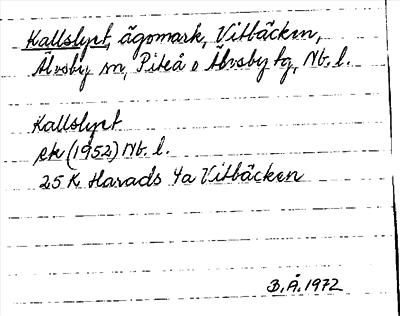 Kallslyet, ägomark, Vitbäcken,
Älvsby sn, Piteå o Älvsby tg, Nb. l.
Kallslyet
ek (1952) Nb. l.
25 K Harads 4a Vitbäcken
B.Å. 1972